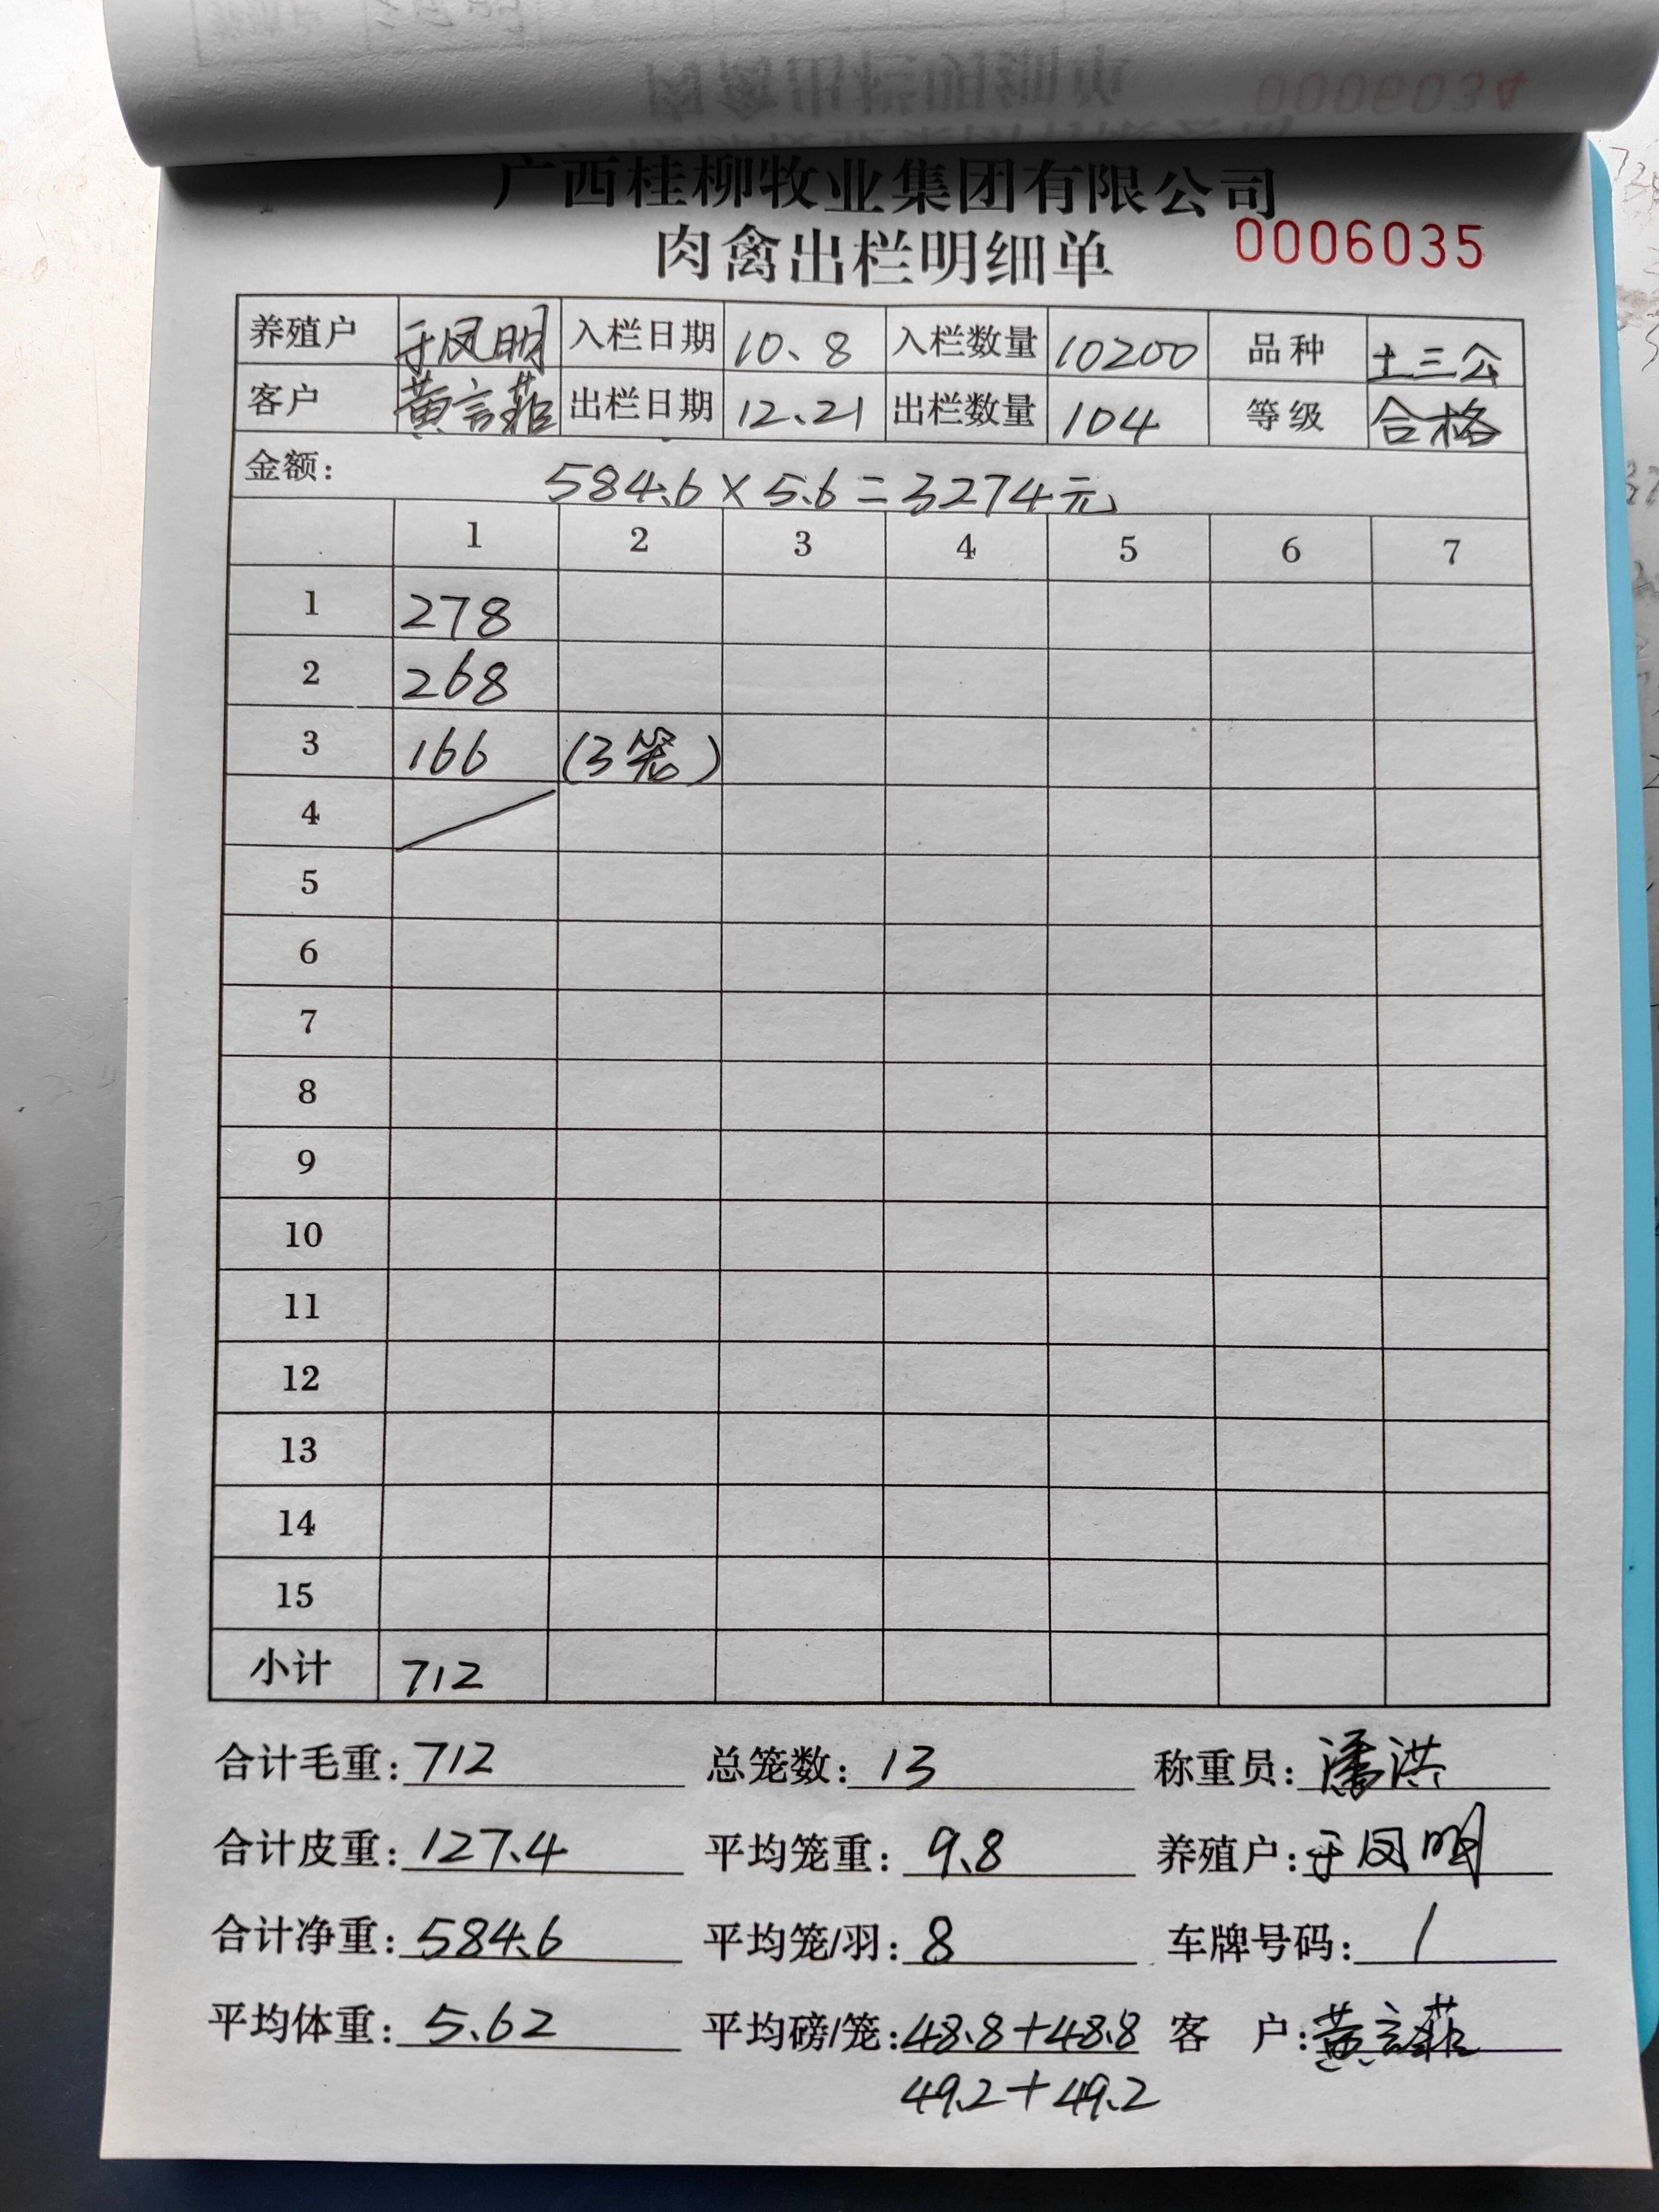 广西桂柳牧业集团有限公司
肉禽出栏明细单 0006035
养殖户 于凤明 入栏日期 10、8 入栏数量 10200 品种 土三公
客户 黄言菲 出栏日期 12、21 出栏数量 104 等级 合格
金额: 584.6×5.6=3274元
1 2 3 4 5 6 7
1 278
2 268
3 166 (3笼)
4
5
6
7
8
9
10
11
12
13
14
15
小计 712
合计毛重: 712 总笼数: 13 称重员: 潘洪
合计皮重: 127.4 平均笼重: 9.8 养殖户: 于凤明
合计净重: 584.6 平均笼/羽: 8 车牌号码: /
平均体重: 5.62 平均磅/笼: 48.8+48.8 客 户: 黄言菲
49.2+49.2